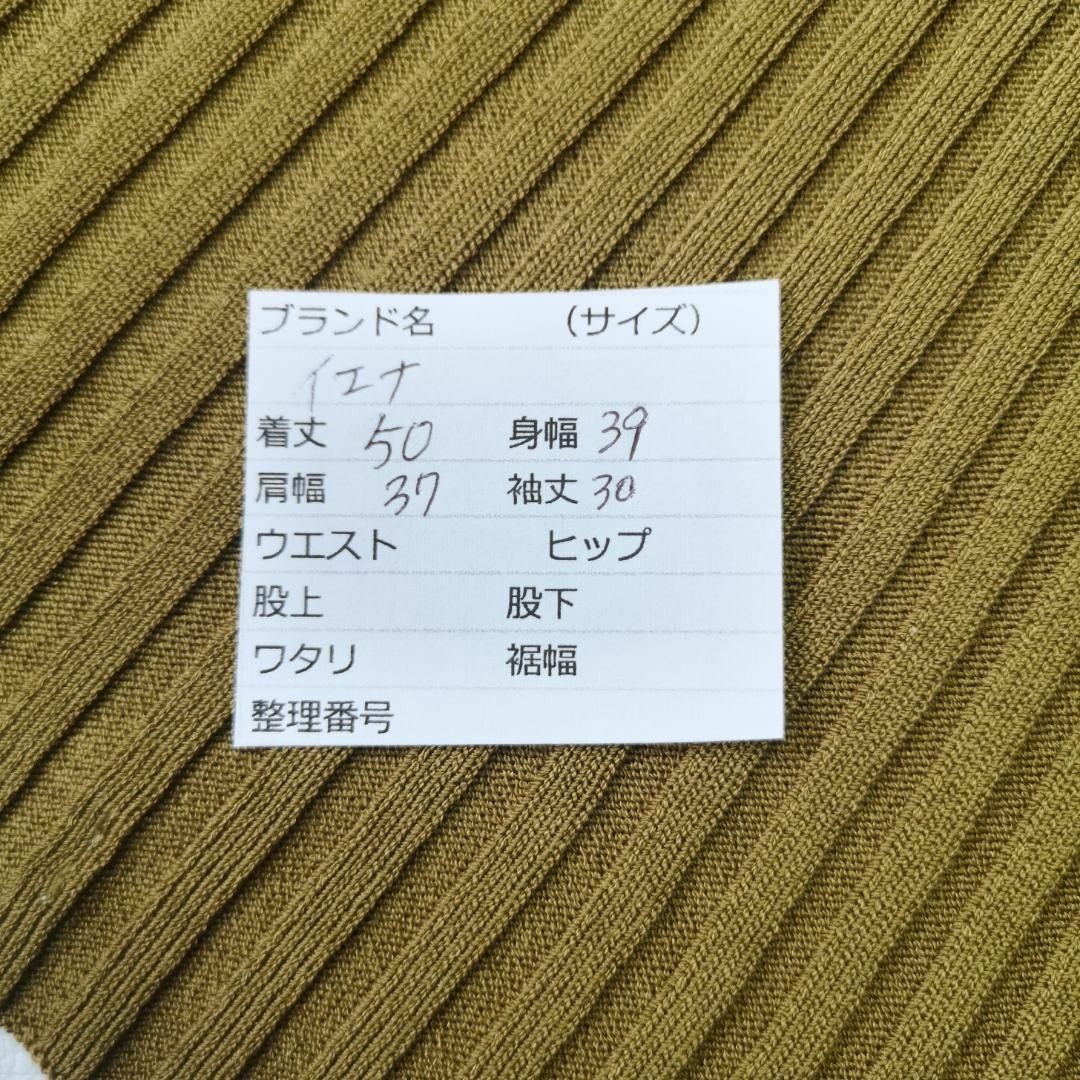 ブランド名 （サイズ）
イエナ
着丈 50 身幅 39
肩幅 37 袖丈 30
ウエスト ヒップ
股上 股下
ワタリ 裾幅
整理番号